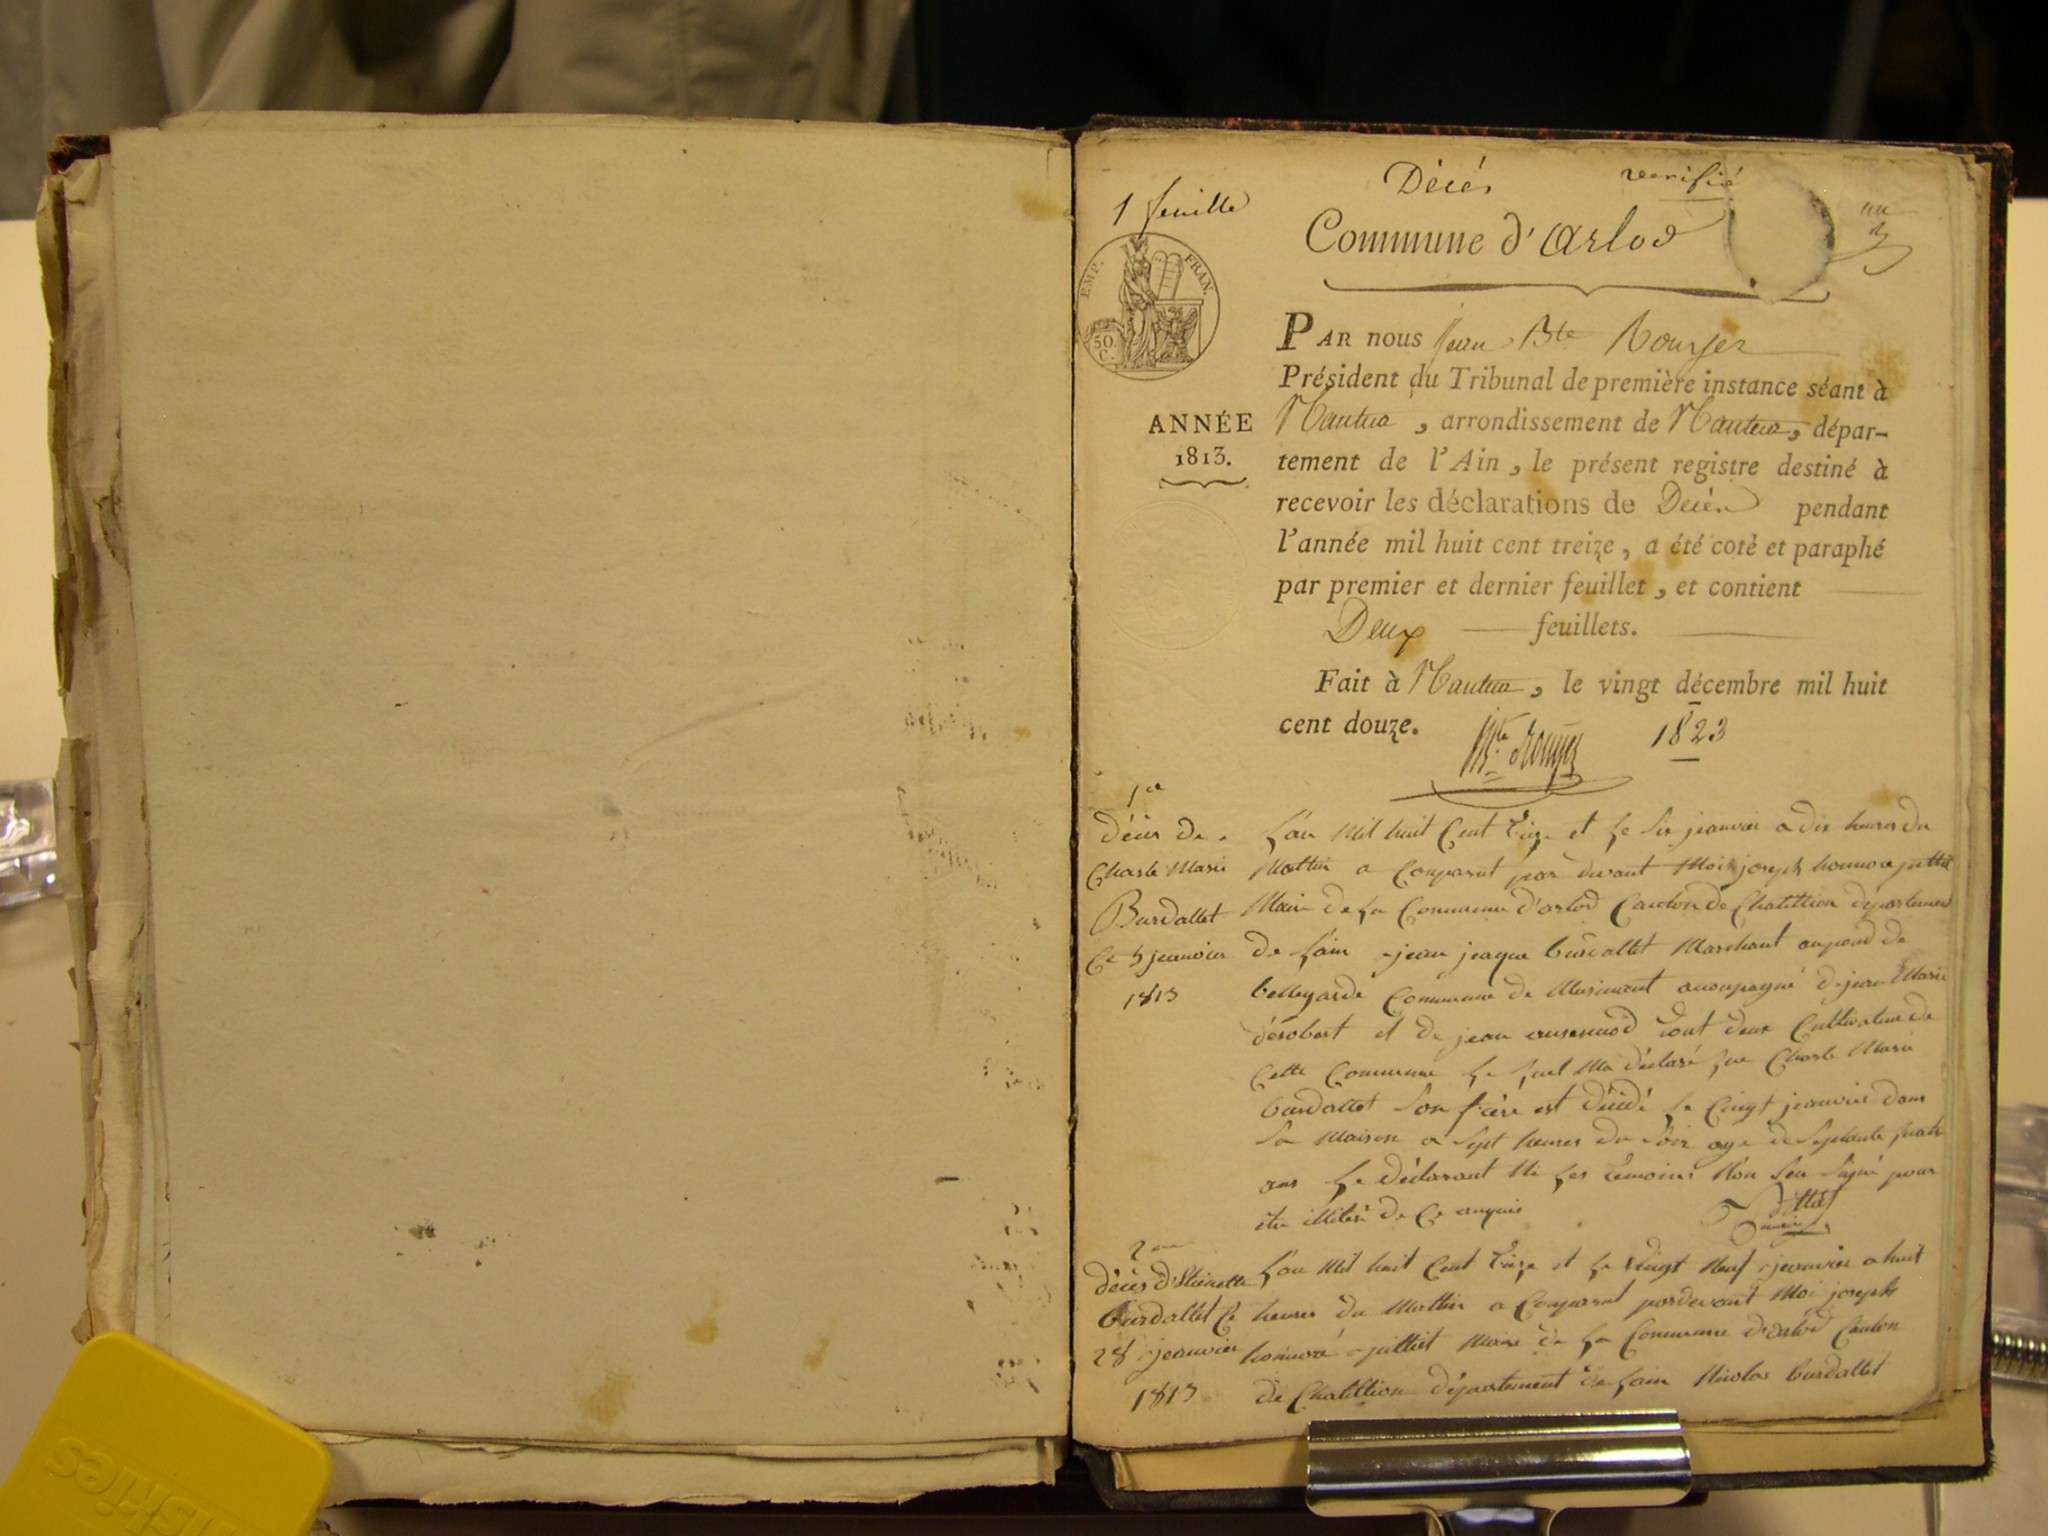 1 feuille
Décés
verifié
Commune d'arlod
EMP. FRAN.
50.
C.
ANNÉE
1813.
PAR nous Jean Bte Rouyer
Président du Tribunal de première instance séant à
Nantua, arrondissement de Nantua, dépar-
tement de l'Ain, le présent registre destiné à
recevoir les déclarations de Décés pendant
l'année mil huit cent treize, a été coté et paraphé
par premier et dernier feuillet, et contient
Deux feuillets.
Fait à Nantua, le vingt décembre mil huit
cent douze.
1823
1er
décès de
Charle Marie
Burdallet
Ce 5 jeanvier
1813
L'an Mil huit Cent Treize et le six jeanvier a dix heures du
Mattin a Comparut par devant Moi joseph honnoré
Maire de La Commune d'arlod Canton de Chatillion département
de L'ain jean jeaque burdallet Marchant aupond de
bellegarde Commune de Musinant acompagné de jean Marie
désobert et de jean tout deux Cultivateur de
Cette Commune Le quel Ma déclaré que Charle Marie
burdallet Son frère est décédé le Cinq jeanvier dans
Sa Maison a Sept heures du Soir age de Septante quatre
ans Le déclarant Ni Les témoins Non Seu Signé pour
être illitéré de Ce anquis
Maire
2me
décès d'Etienette
burdallet Ce
28 jeanvier
1813
L'an Mil huit Cent Treize et le vingt Neuf jeanvier a huit
heures du Mattin a Comparut pardevant Moi joseph
honnoré Maire de La Commune d'arlod Canton
de Chatillion département de L'ain Nicolas burdallet
skies